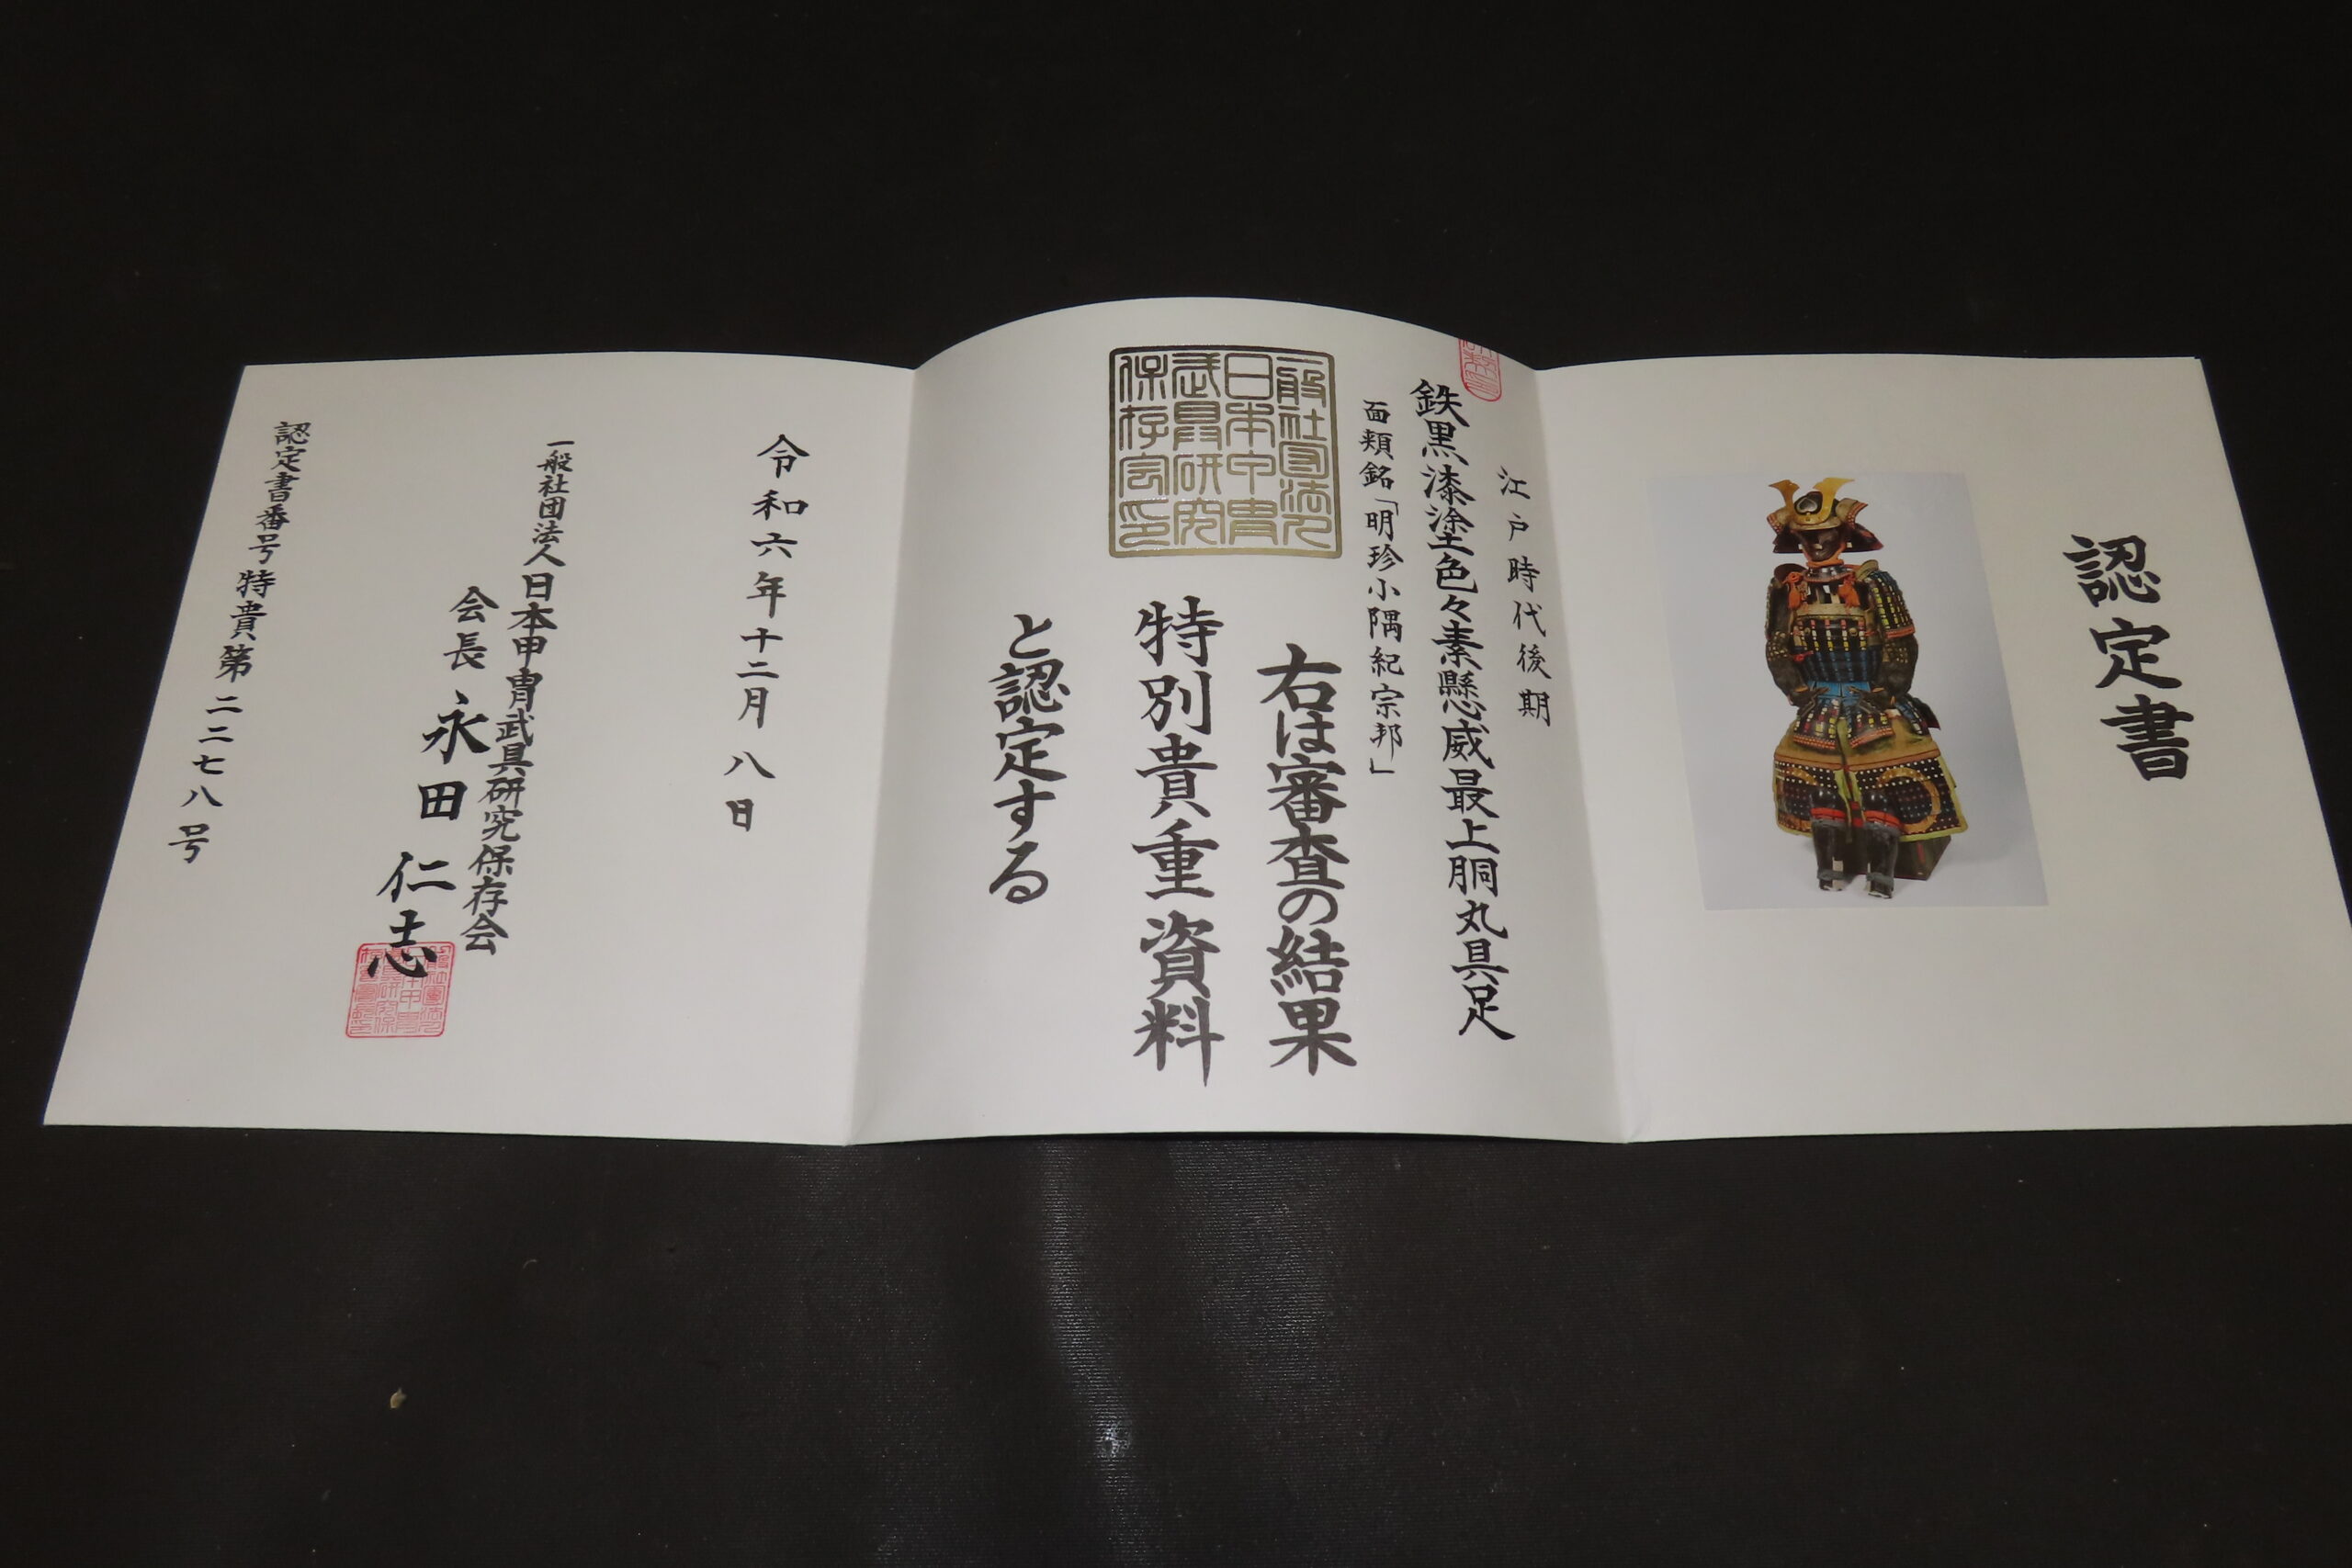 認定書
江戸時代後期
鉄黒漆塗色々素懸威最上胴丸具足
面類銘「明珍小隅紀宗邦」
右は審査の結果
特別貴重資料
と認定する
一般社団法人
日本甲冑
武具研究
保存会印
令和六年十二月八日
一般社団法人日本甲冑武具研究保存会
会長 永田仁志
認定書番号特貴第二二七八号